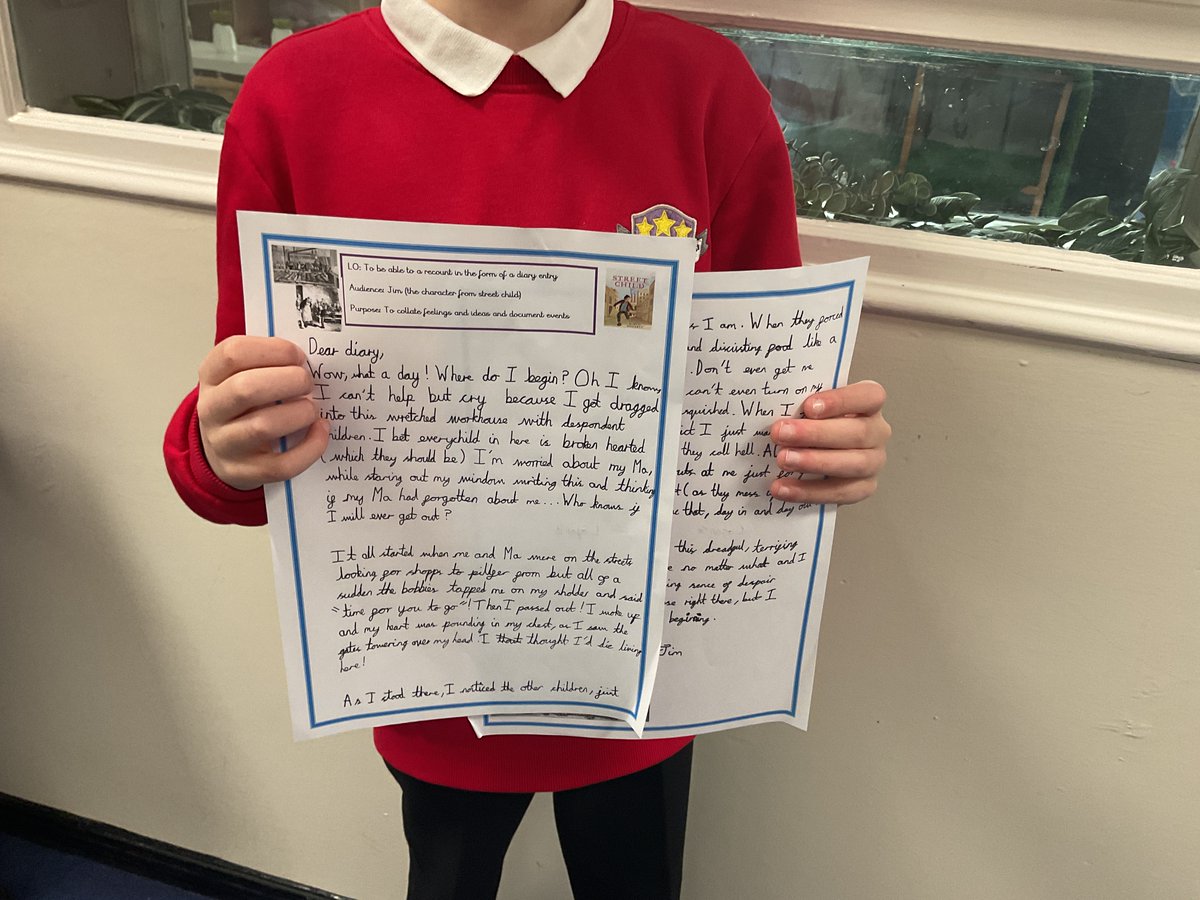 LO: To be able to a recount in the form of a diary entry
Audience: Jim (the character from street child)
Purpose: To collate feelings and ideas and document events
STREET
CHILD
Dear diary,
Wow, what a day! Where do I begin? Oh I know,
I can't help but cry because I got dragged
into this wretched workhouse with despondent
children. I bet everychild in here is broken hearted
(which they should be) I'm worried about my Ma,
while staring out my window writing this and thinking
if my Ma had forgotten about me... Who knows if
I will ever get out?
It all started when me and Ma were on the streets
looking for shopps to pilfer from but all of a
sudden the bobbies tapped me on my sholder and said
"time for you to go"! Then I passed out! I woke up
and my heart was pounding in my chest, as I saw the
gates towering over my head. I thought I'd die living
here!
As I stood there, I noticed the other children, just
I am. When they forced
and discisting food like a
. Don't even get me
can't even turn on my
nguished. When I
ict I just wa
they call hell. A
at me just for
t (as they mess
that, day in and day out
this dreadful, terrifying
no matter what and I
ing sense of despair
se right there, but I
begining.
Jim